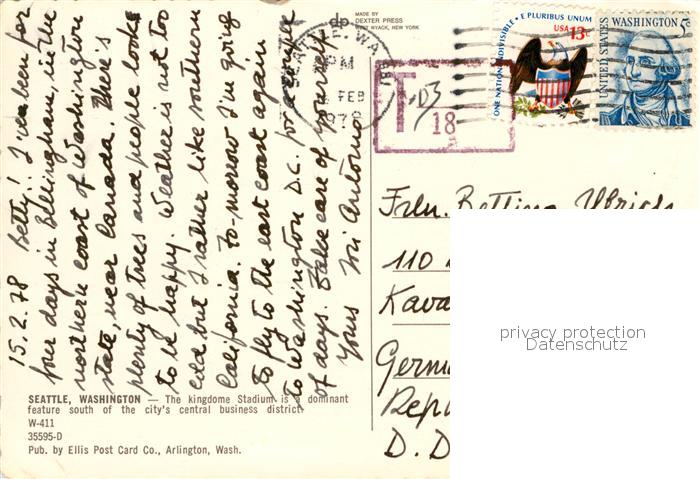 15.2.78 Betty!! I've been for
four days in Bellingham, in the
northern coast of Washington
state, near Canada. There's
plenty of trees and people looks
to be happy. Weather is not too
cold but I rather like southern
California. To-morrow I'm going
to fly to the east coast again
to Washington D.C. for a couple
of days. Take care of yourself
Yours Antonio
MADE BY
DEXTER PRESS
WEST NYACK, NEW YORK
SEATTLE, WA
PM
FEB
1978
T
18
ONE NATION INDIVISIBLE • E PLURIBUS UNUM
USA 13c
UNITED STATES
WASHINGTON 5c
Frln. Bettina Ulrich
110
Kava
Germ
Repu
D.D
privacy protection
Datenschutz
SEATTLE, WASHINGTON — The kingdome Stadium is a dominant
feature south of the city's central business district.
W-411
35595-D
Pub. by Ellis Post Card Co., Arlington, Wash.